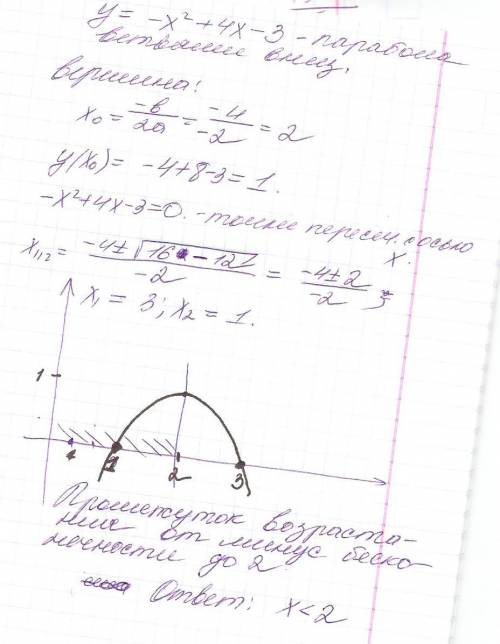 y = -x² + 4x - 3 - парабола
ветвями вниз.
вершина:
x₀ = -b/2a = -4/-2 = 2
y(x₀) = -4+8-3 = 1.
-x²+4x-3=0. - точки пересеч. с осью
x.
x₁,₂ = (-4 ± √(16 - 12))/-2 = (-4±2)/-2 ;
x₁ = 3; x₂ = 1.
1
1 1 2 3
Промежуток возраста-
ния от минус беско-
нечности до 2
Ответ: x<2